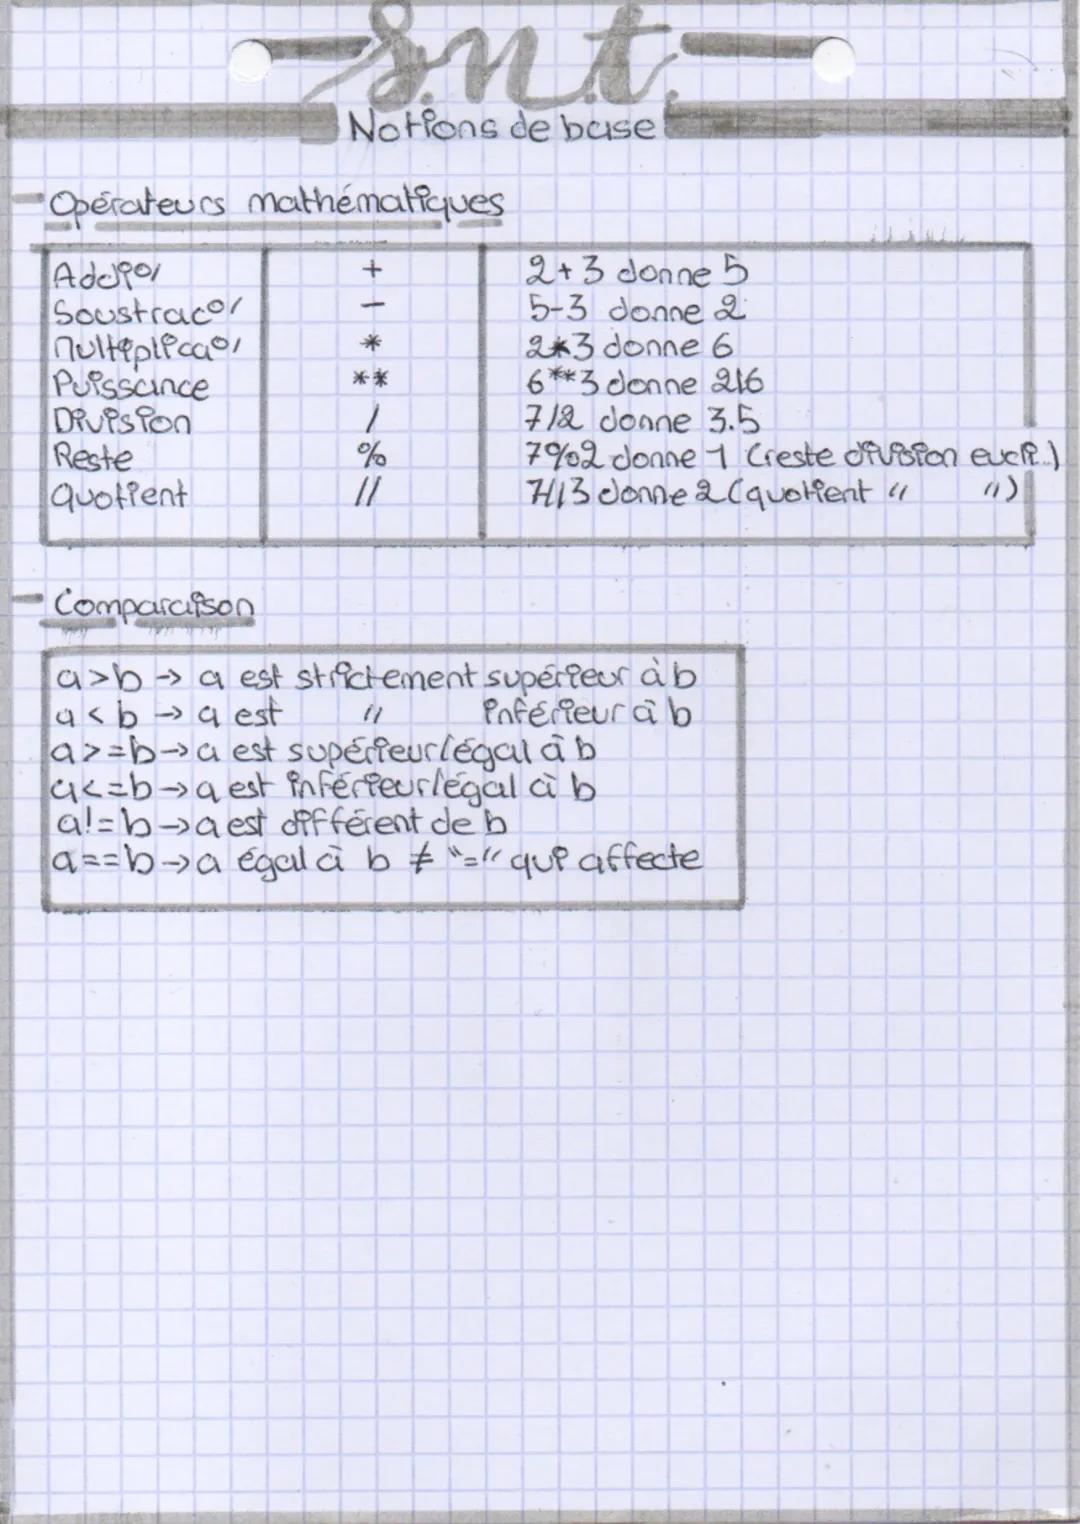 S.n.t.
Notions de base
- Opérateurs mathématiques
Addi°/ + 2+3 donne 5
Soustrac°/ - 5-3 donne 2
Multiplica°/ * 2*3 donne 6
Puissance ** 6**3 donne 216
Division / 7/2 donne 3.5
Reste % 7%2 donne 1 (reste division eucli.)
quotient // 7//3 donne 2 (quotient " ")
- Comparaison
a>b → a est strictement supérieur à b
a<b → a est " inférieur à b
a>=b → a est supérieur/égal à b
a<=b → a est inférieur/égal à b
a!=b → a est différent de b
a==b → a égal à b ≠ "=" qui affecte